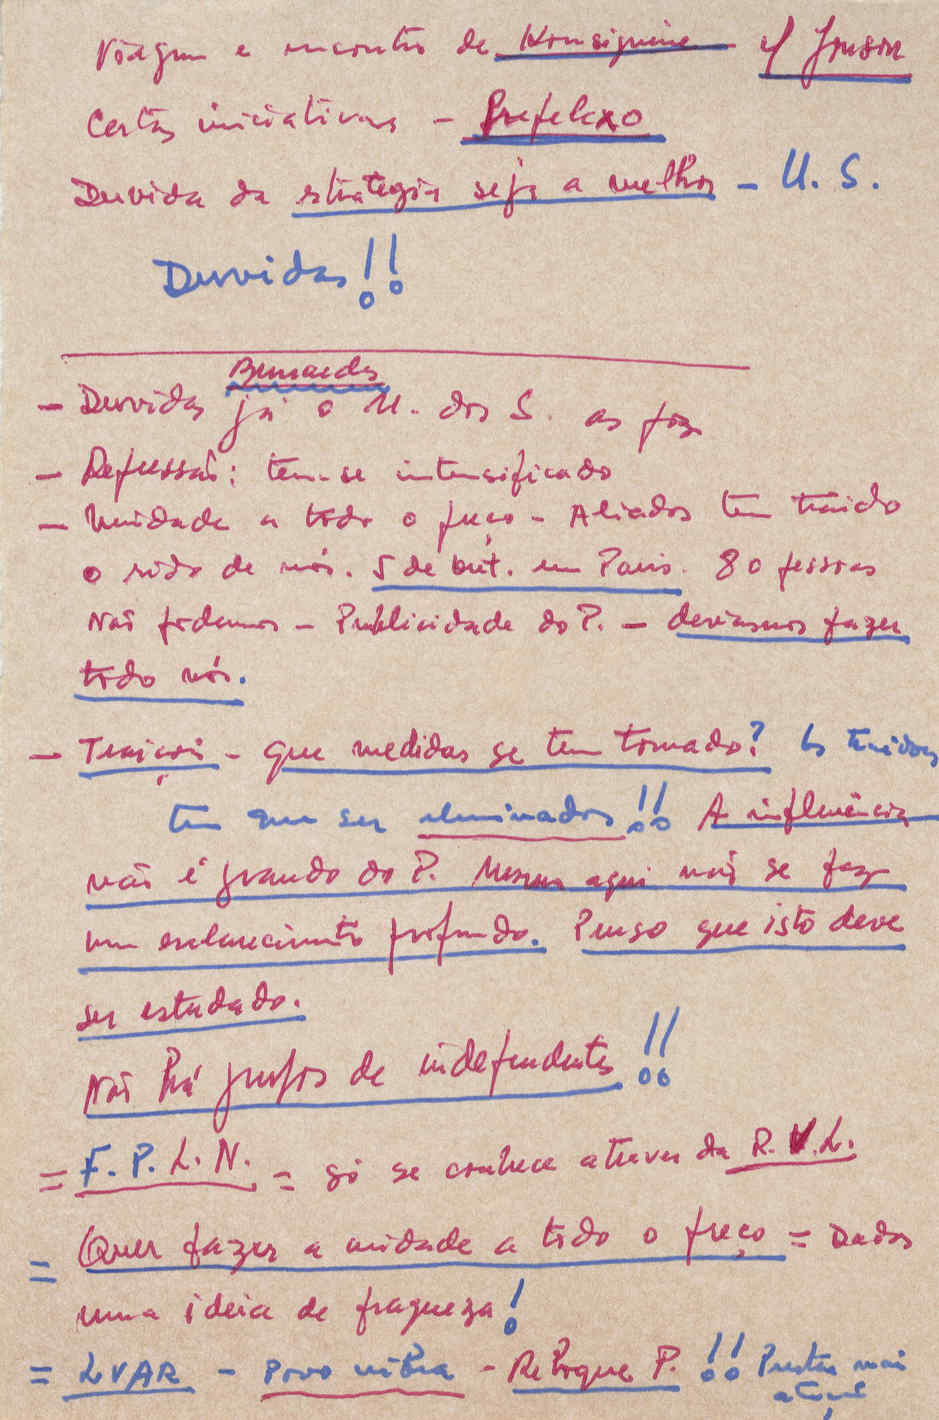 Viagem e encontro de Konsiguine c/ Jonson
Certas iniciativas - Prefelexo
Duvida da estrategia seja a melhor - U. S.
Duvidas!!
Bernardes
- Duvidas já o M. dos S. as faz
- Repressão: tem-se intensificado
- Unidade a todo o preço - Aliados tem traido
o modo de nós. 5 de out. em Paris. 80 pessoas
Não podemos - Publicidade do P. - deviamos fazer
todo nós.
- Traição - que medidas se tem tomado? Os traidores
tem que ser eliminados!! A influência
não é grande do P. Mesmo aqui não se faz
um esclarecimento profundo. Penso que isto deve
ser estudado.
Não há grupos de independentes!!
= F. P. L. N. = só se conhece atraves da R. V. L.
= Quer fazer a unidade a todo o preço = Dados
uma ideia de fraqueza!
= LUAR - Povo vibra - Reboque P. !! Prestar mais
atenç